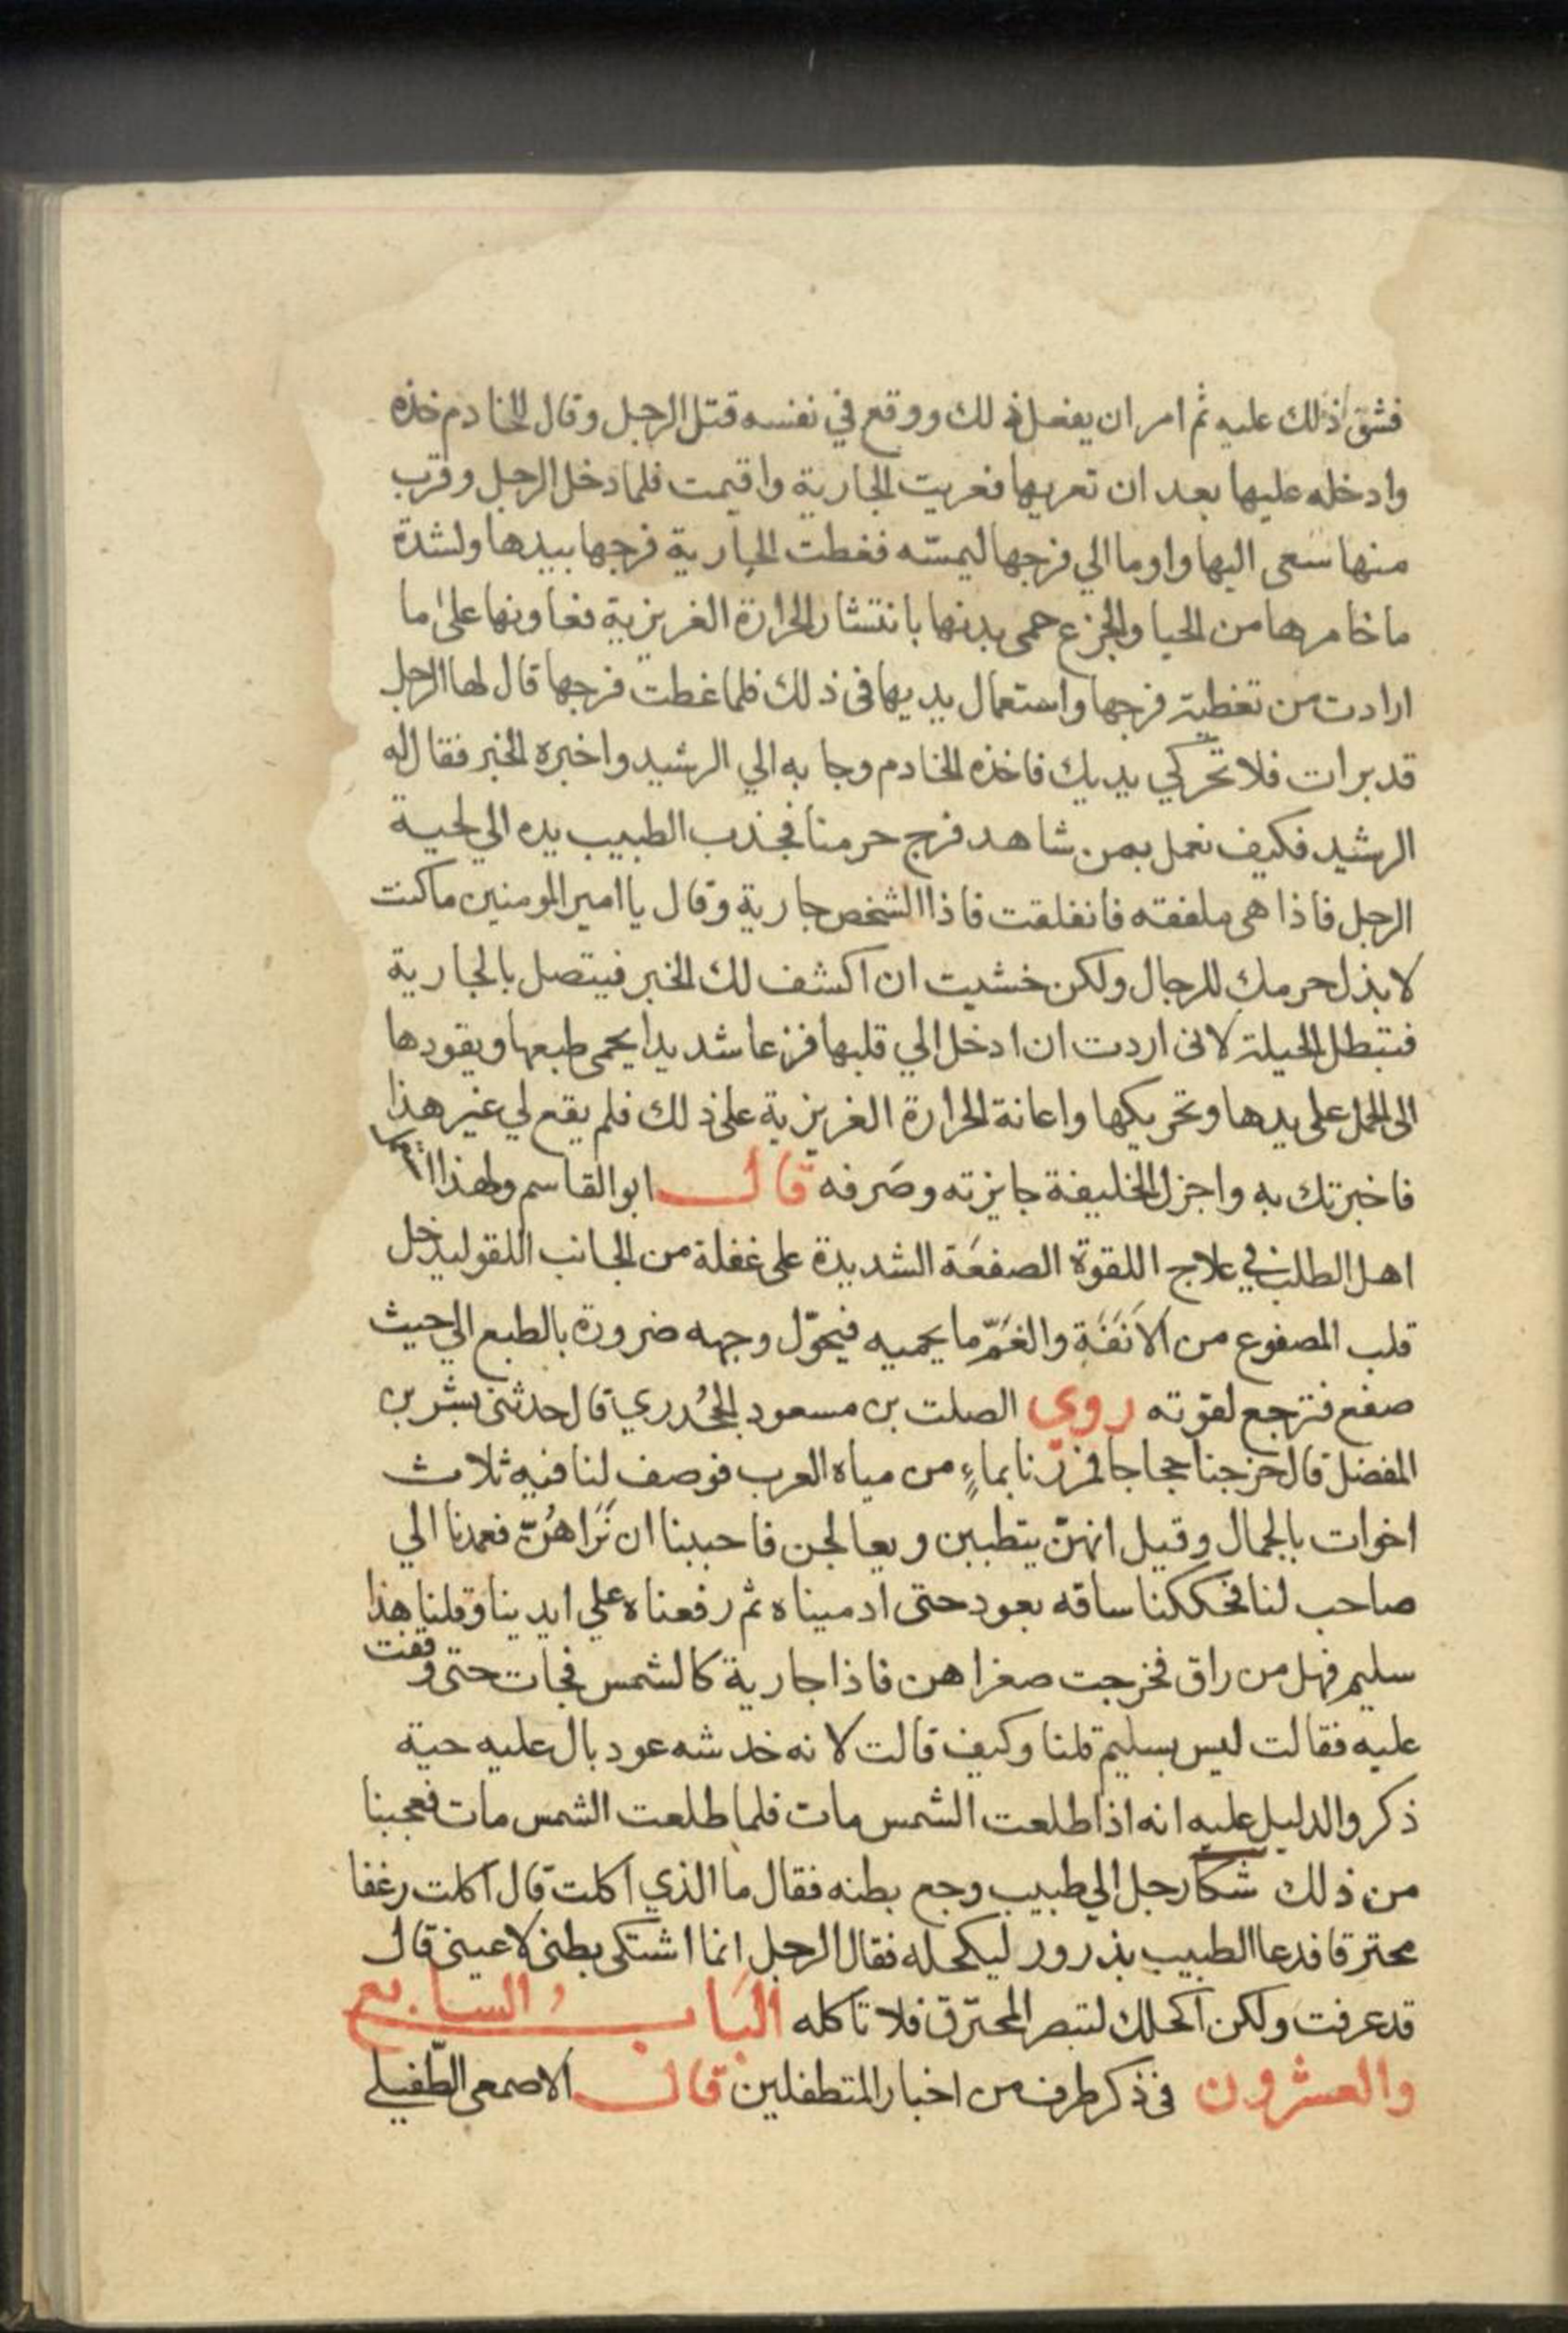 فشق ذلك عليه ثم امر ان يفعل ذلك ووقع في نفسه قتل الرجل وقال للخادم خذه
وادخله عليها بعد ان تعريها فعريت الجارية واقيمت فلما دخل الرجل وقرب
منها سعى اليها واوما الي فرجها ليمسّه فغطت الجارية فرجها بيدها ولشدة
ما خامرها من الحيا والجزع حمى بدنها بانتشار الحرارة الغريزية فعاونها على ما
ارادت من تغطية فرجها واستعمال يديها في ذلك فلما غطت فرجها قال لها الرجل
قد برات فلا تحركي يديك فاخذه الخادم وجا به الي الرشيد واخبره الخبر فقال له
الرشيد فكيف نعمل بمن شاهد فرج حرمنا فجذب الطبيب يده الي لحية
الرجل فاذا هى ملفقه فانفلقت فاذا الشخص جارية وقال يا امير المومنين ما كنت
لابذل حرمك للرجال ولكن خشيت ان اكشف لك الخبر فيتصل بالجارية
فتبطل الحيلة لانى اردت ان ادخل الي قلبها فزعا شديدا يحمى طبعها ويقودها
الى الحمل على يدها وتحريكها واعانة الحرارة الغريزية على ذلك فلم يقع لي غير هذا
فاخبرتك به واجزل الخليفة جايزته وصَرفه قال ابو القاسم ولهذا
اهل الطلب في علاج اللقوة الصفعَة الشديدة على غفلة من الجانب اللقو ليدخل
قلب المصفوع من الاَنَفَة والغَمّ ما يحميه فيحوّل وجهه ضرورة بالطبع الي حيث
صفع فترجع لقوته روي الصلت بن مسعود الجحُدري قال حدثنى بشر بن
المفضل قال خرجنا حجاجا فمررنا بماءٍ من مياه العرب فوصف لنا فيه ثلاث
اخوات بالجمال وقيل انهنّ يتطببن ويعالجن فاحببنا ان نَرَاهُنّ فعمدنا الي
صاحب لنا فحككنا ساقه بعود حتى ادميناه ثم رفعناه علي ايدينا وقلنا هذا
سليم فهل من راق فخرجت صغراهن فاذا جارية كالشمس فجات حتى وقفت
عليه فقالت ليس بسليم قلنا وكيف قالت لانه خدشه عود بال عليه حية
ذكر والدليل عليه انه اذا طلعت الشمس مات فلما طلعت الشمس مات فعجبنا
من ذلك شكا رجل الي طبيب وجع بطنه فقال ما الذي اكلت قال اكلت رغفا
محترقا فدعا الطبيب بذرور ليكحله فقال الرجل انما اشتكى بطنى لا عينى قال
قد عرفت ولكن اكحلك لتبصر المحترق فلا تاكله البَاب السابع
والعشرون فى ذكر طرف من اخبار المتطفلين قال الاصمعى الطّفيلي